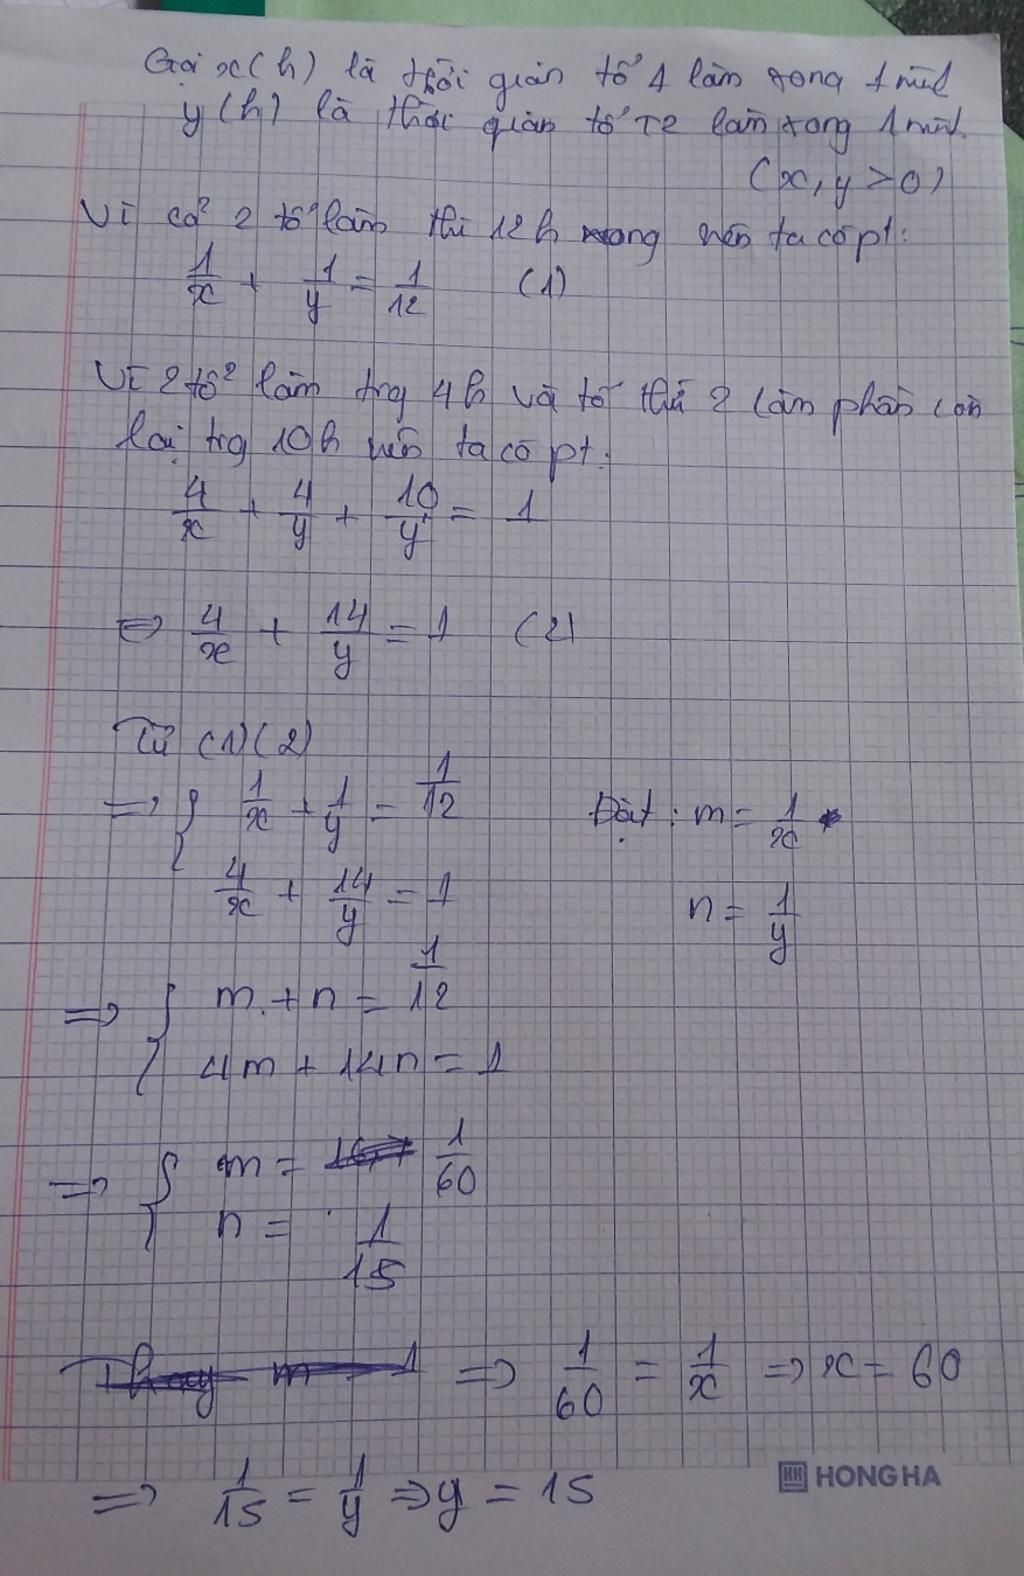 Gọi x(h) là thời gian tổ 1 làm xong 1 mình
y(h) là thời gian tổ T2 làm xong 1 mình.
(x, y > 0)
Vì cả 2 tổ làm thì 12h xong nên ta có pt:
1/x + 1/y = 1/12 (1)
Vì 2 tổ làm trg 4h và tổ thứ 2 làm phần còn
lại trg 10h nên ta có pt:
4/x + 4/y + 10/y = 1
⇔ 4/x + 14/y = 1 (2)
Từ (1)(2)
=> { 1/x + 1/y = 1/12 Đặt: m = 1/x
4/x + 14/y = 1 n = 1/y
=> { m + n = 1/12
4m + 14n = 1
=> { m = 1/60
n = 1/15
Thay m = 1 => 1/60 = 1/x => x = 60
=> 1/15 = 1/y => y = 15
HONG HA